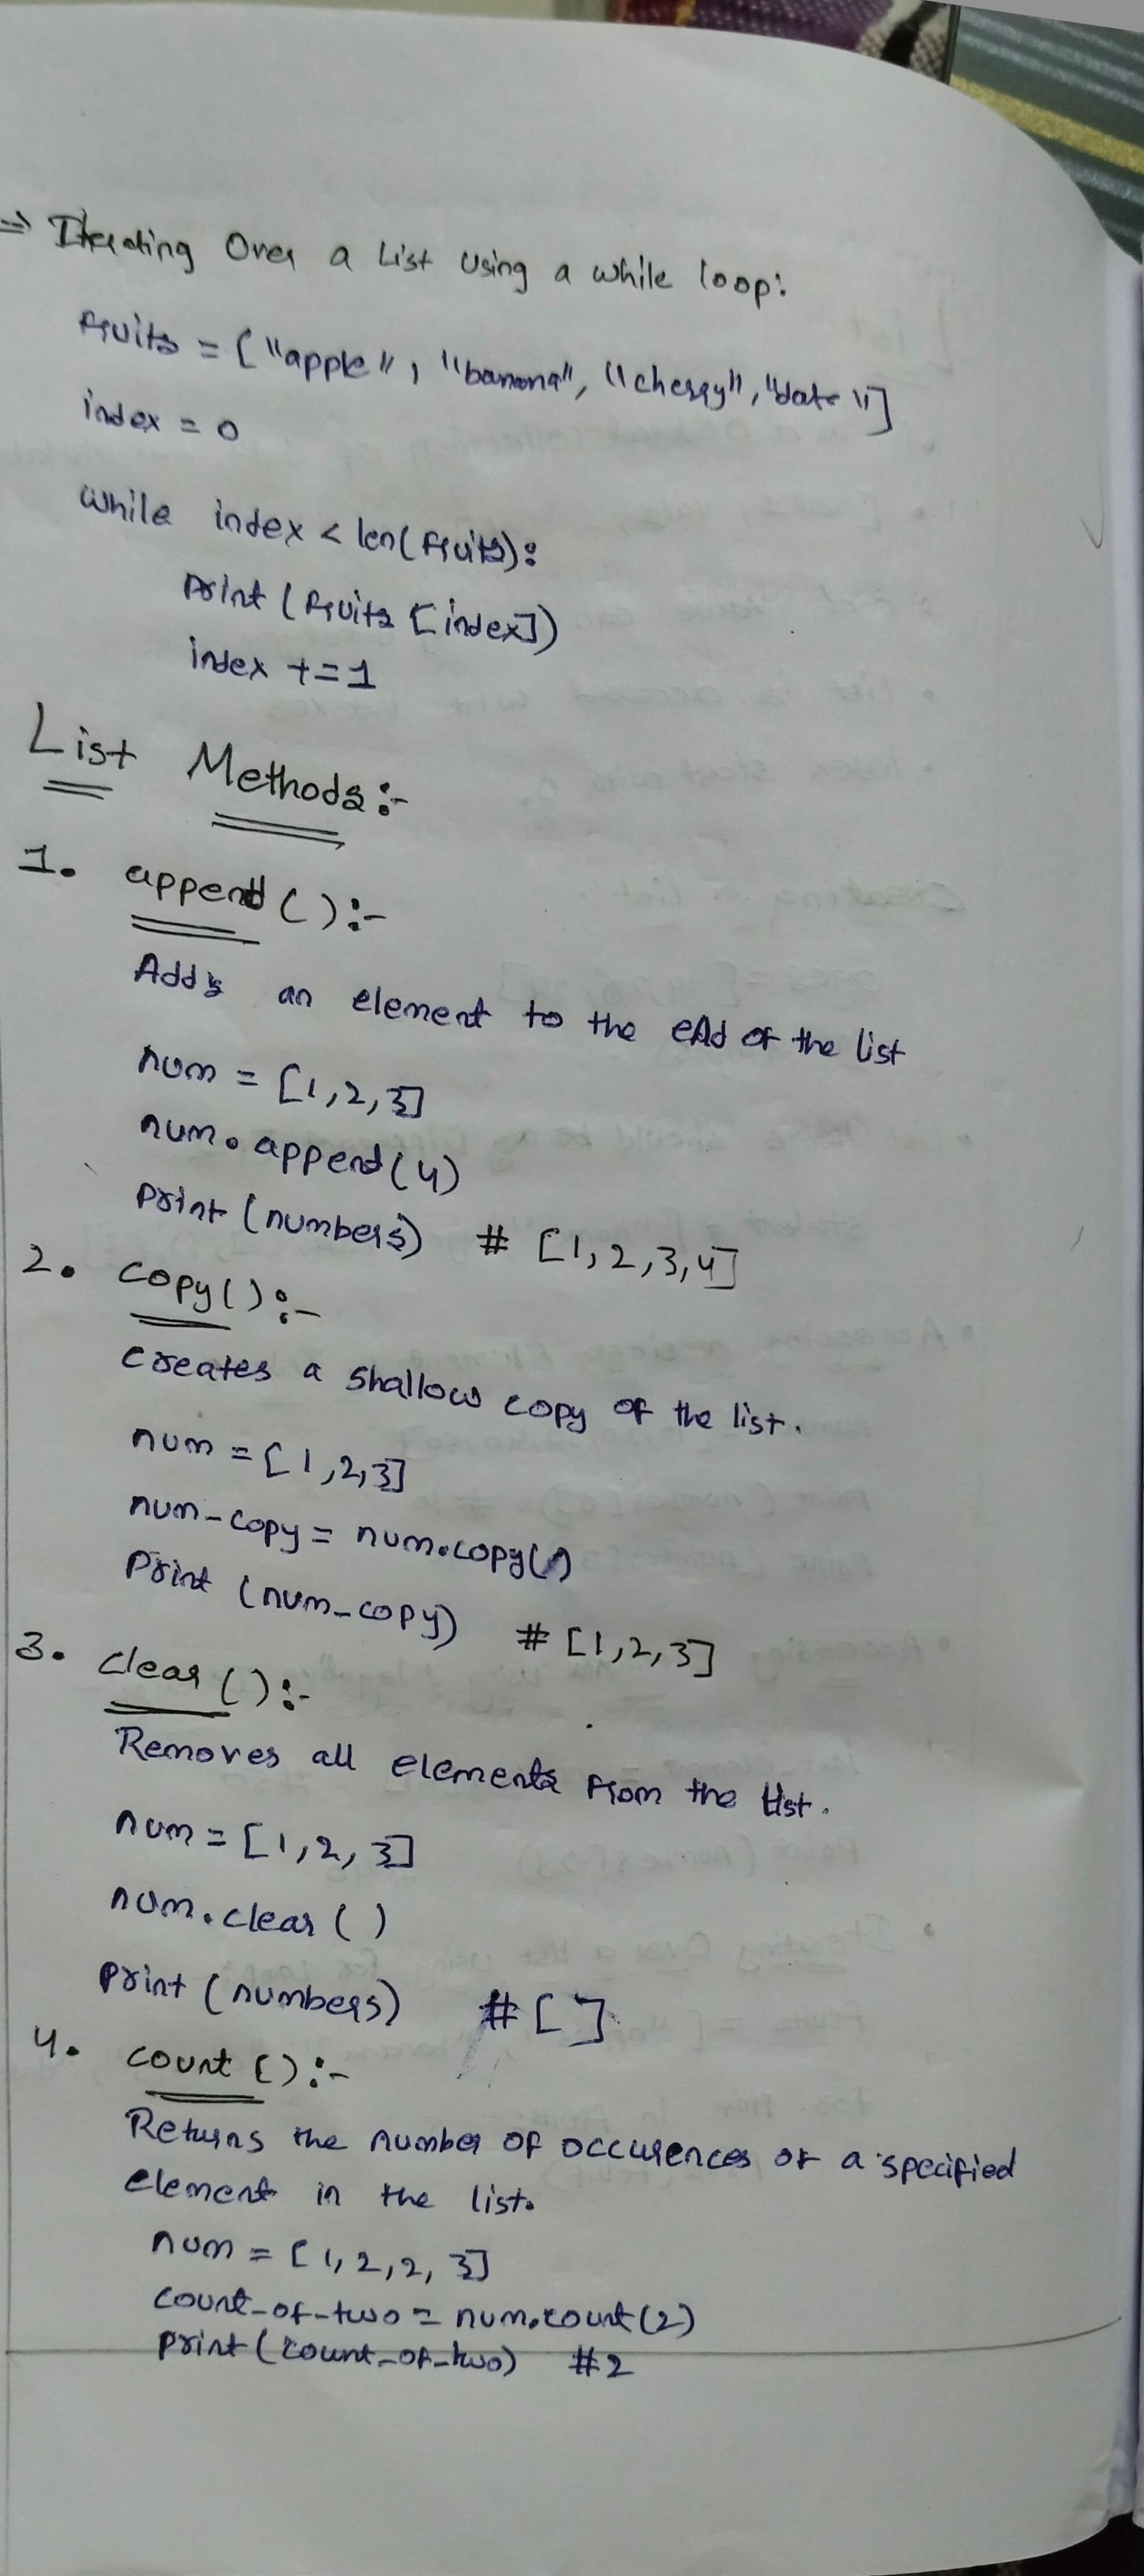 ⇒ Iterating Over a List Using a while loop:
fruits = ["apple", "banana", "cherry", "date"]
index = 0
while index < len(fruits):
print (fruits [index])
index += 1
List Methods:-
1. append():-
Adds an element to the end of the list
num = [1,2,3]
num.append(4)
print (numbers) # [1,2,3,4]
2. copy():-
creates a shallow copy of the list.
num = [1,2,3]
num-copy = num.copy()
Print (num_copy) # [1,2,3]
3. clear():-
Removes all elements from the list.
num = [1,2,3]
num.clear()
print (numbers) # [ ]
4. count():-
Returns the number of occurences of a specified
element in the list.
num = [1,2,2,3]
count_of_two = num.count(2)
print (count_of_two) #2